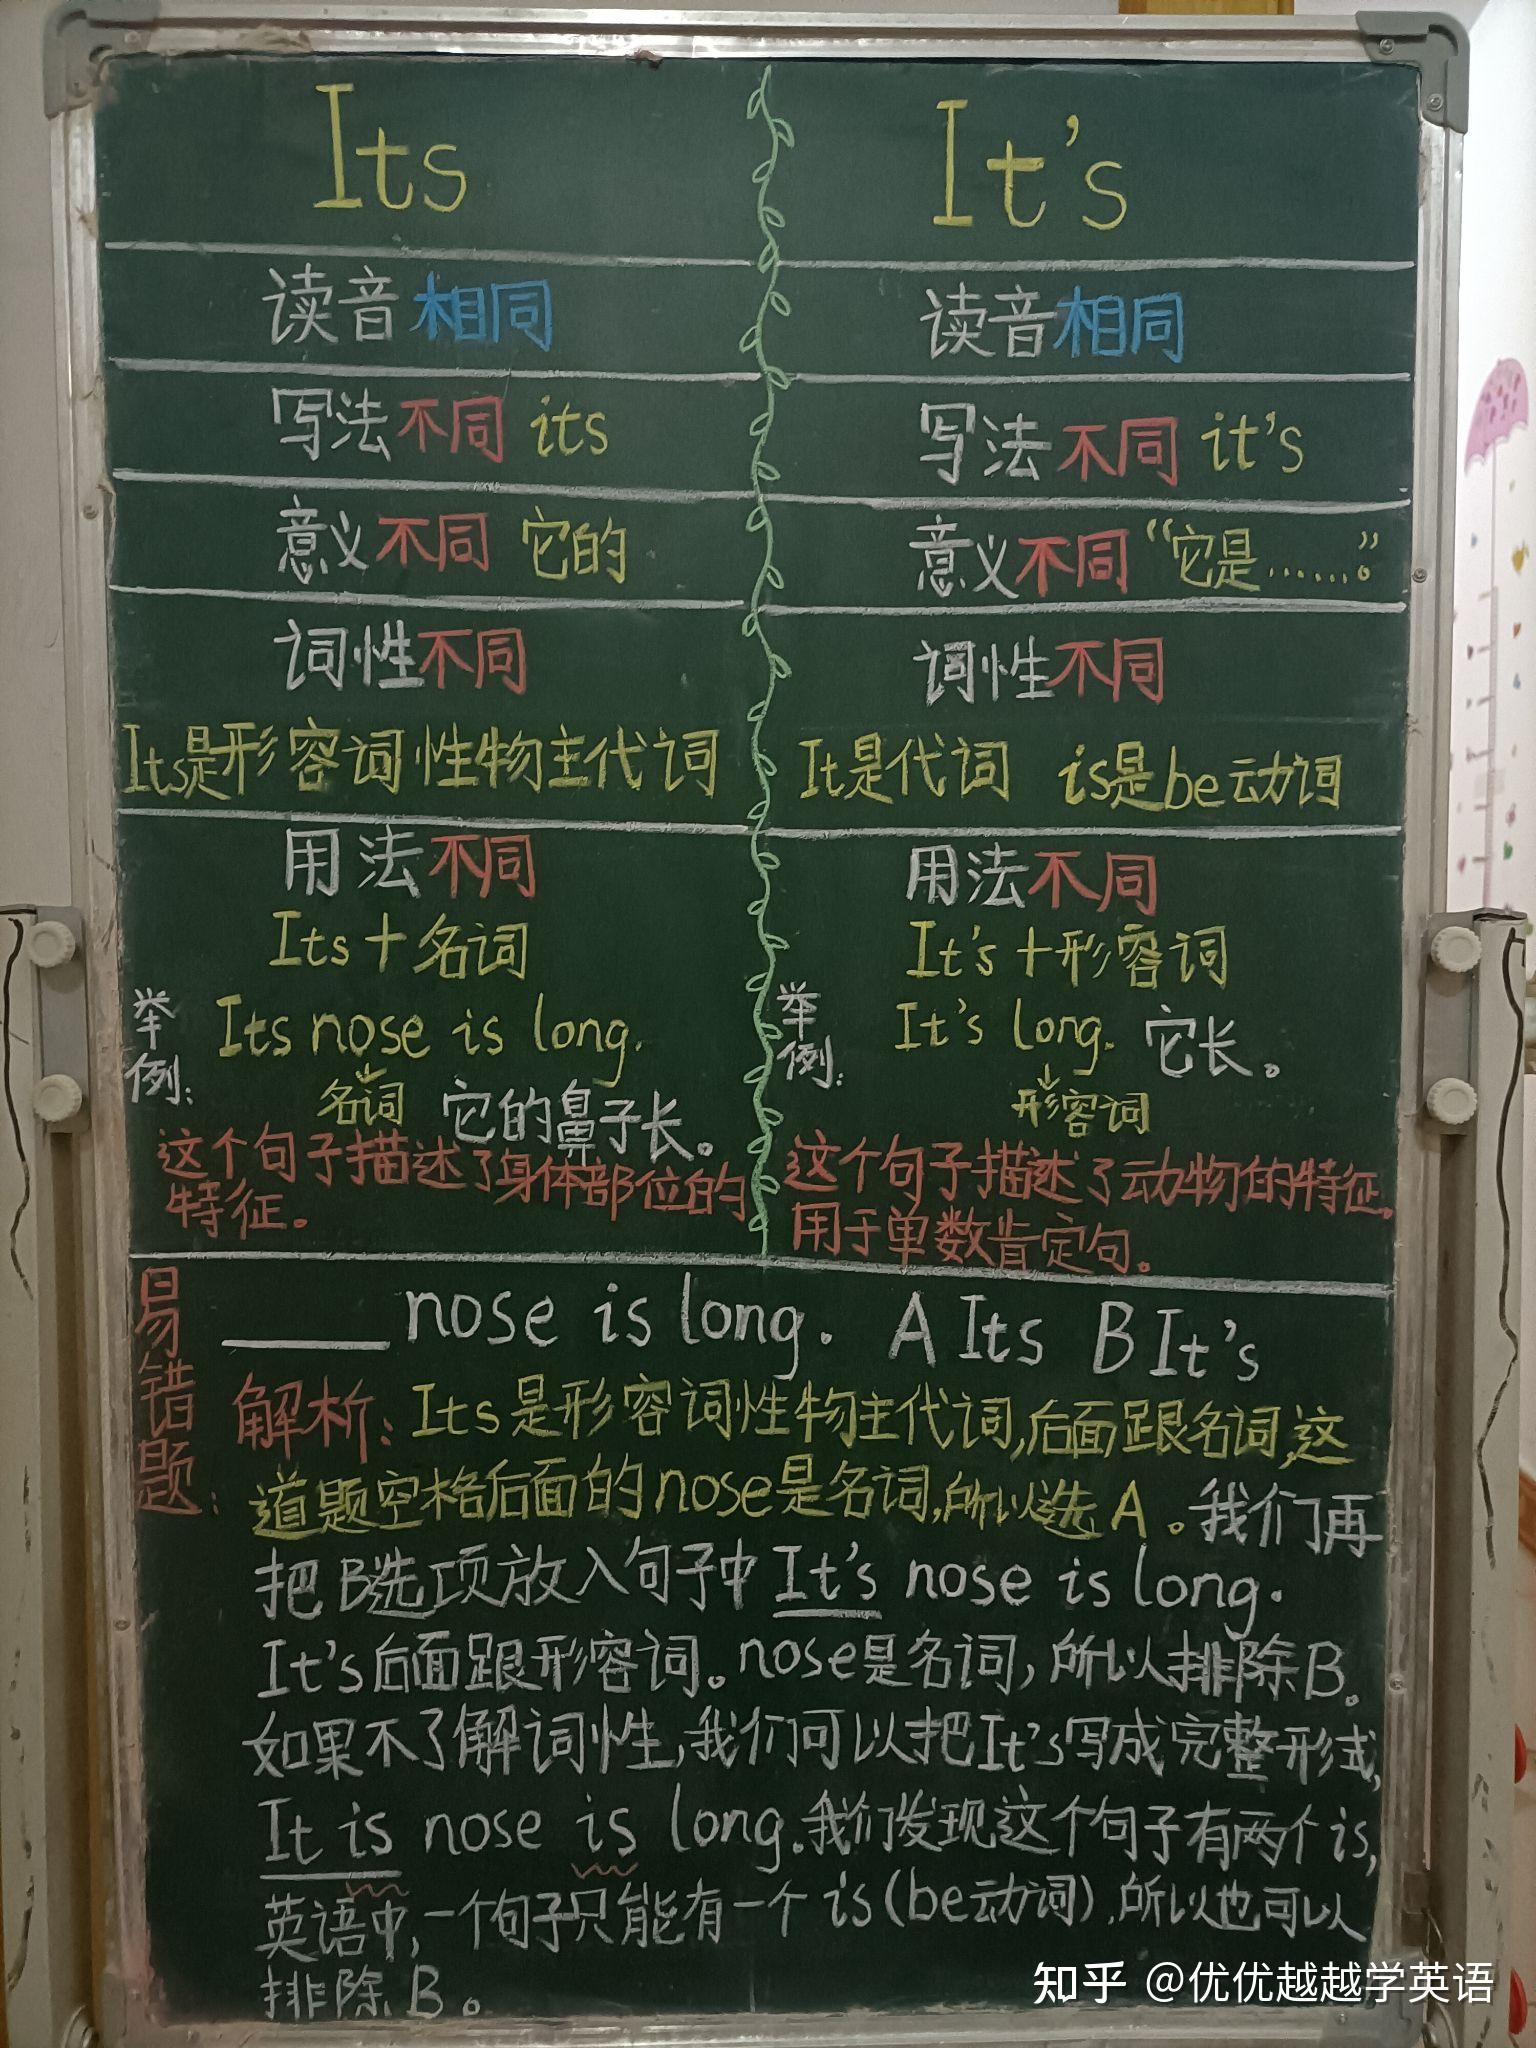 Its
It's
读音相同
读音相同
写法不同 its
写法不同 it's
意义不同 它的
意义不同 “它是……。”
词性不同
Its是形容词性物主代词
词性不同
It是代词 is是be动词
用法不同
Its+名词
举例:
Its nose is long.
名词 它的鼻子长。
这个句子描述了身体部位的
特征。
用法不同
It's+形容词
举例:
It's long. 它长。
形容词
这个句子描述了动物的特征。
用于单数肯定句。
易错题:
____ nose is long. A Its B It's
解析: Its是形容词性物主代词,后面跟名词,这
道题空格后面的nose是名词,所以选A。我们再
把B选项放入句子中 It's nose is long.
It's后面跟形容词。nose是名词,所以排除B。
如果不了解词性,我们可以把It's写成完整形式,
It is nose is long.我们发现这个句子有两个is,
英语中,一个句子只能有一个is(be动词),所以也可以
排除B。
知乎 @优优越越学英语